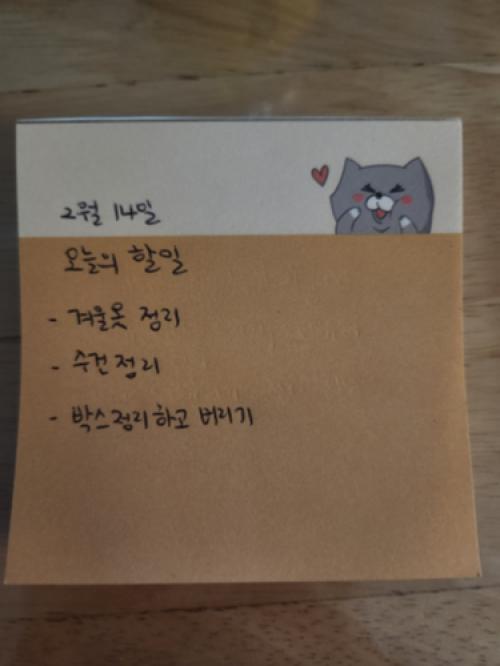 2월 14일
오늘의 할일
- 겨울옷 정리
- 수건정리
- 박스정리하고 버리기